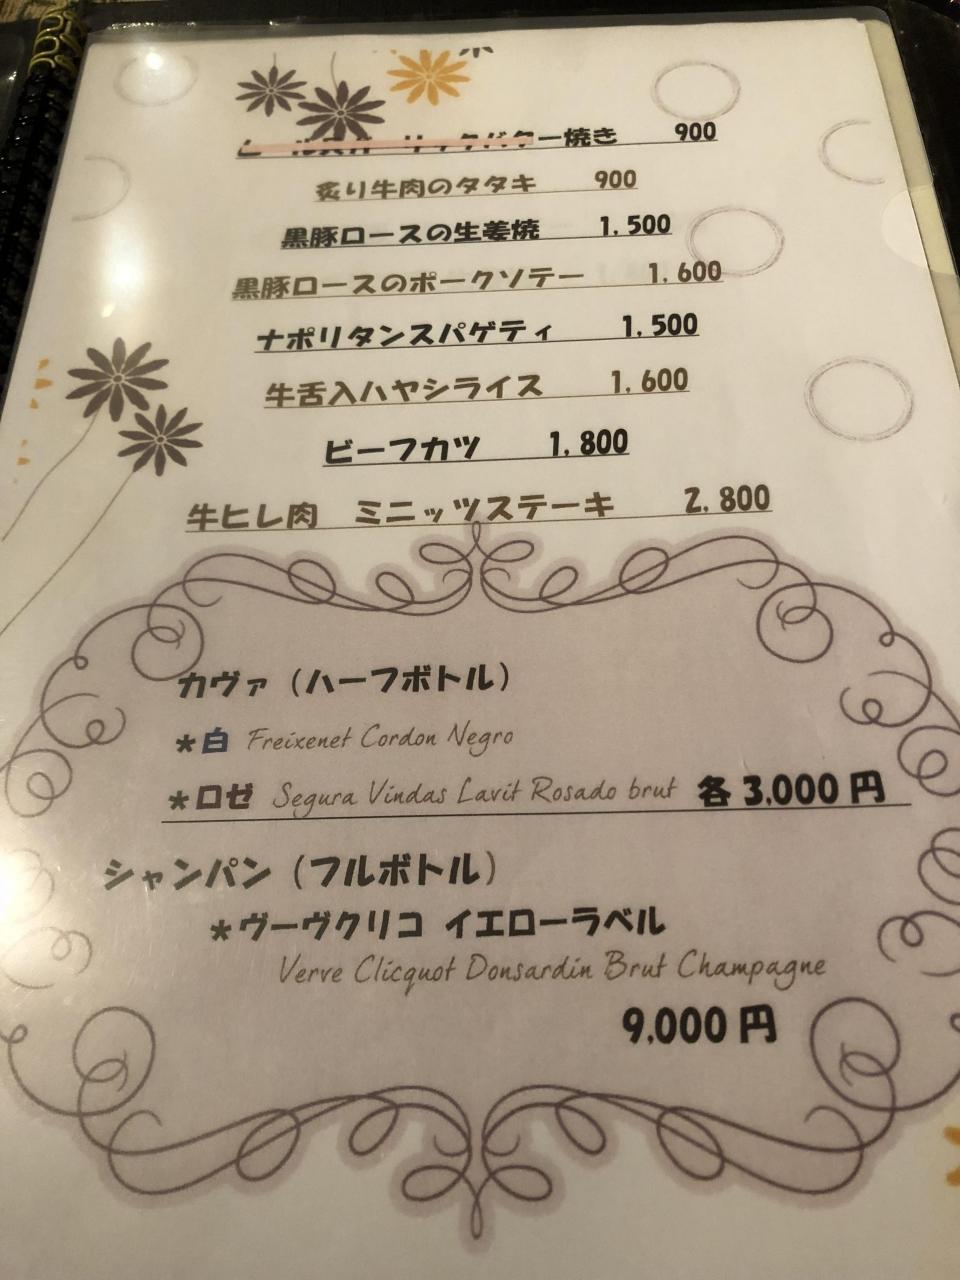 ムール貝ガーリックバター焼き 900
炙り牛肉のタタキ 900
黒豚ロースの生姜焼 1,500
黒豚ロースのポークソテー 1,600
ナポリタンスパゲティ 1,500
牛舌入ハヤシライス 1,600
ビーフカツ 1,800
牛ヒレ肉 ミニッツステーキ 2,800
カヴァ（ハーフボトル）
*白 Freixenet Cordon Negro
*ロゼ Segura Vindas Lavit Rosado brut 各 3,000 円
シャンパン（フルボトル）
*ヴーヴクリコ イエローラベル
Verve Clicquot Donsardin Brut Champagne
9,000 円